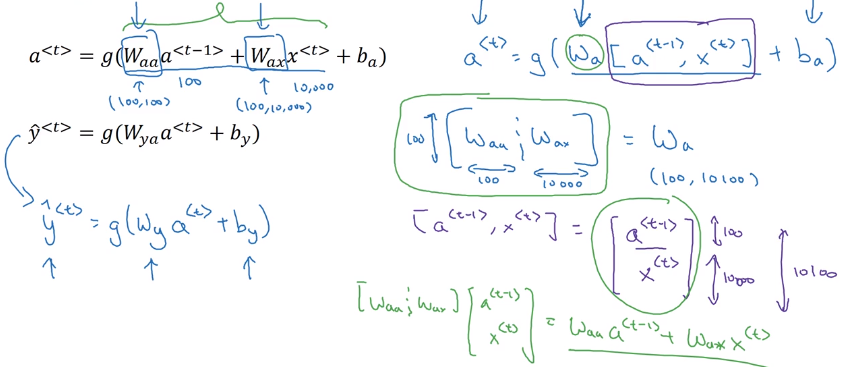 a^{<t>} = g(W_{aa}a^{<t-1>} + W_{ax}x^{<t>} + b_a)
100 10,000
(100,100) (100,10,000)
ŷ^{<t>} = g(W_{ya}a^{<t>} + b_y)
ŷ^{<t>} = g(W_y a^{<t>} + b_y)
a^{<t>} = g(W_a [a^{<t-1>}, x^{<t>}] + b_a)
100 [W_{aa} ; W_{ax}] = W_a
100 10000 (100, 10100)
[a^{<t-1>}, x^{<t>}] = [a^{<t-1>} x^{<t>}] 100 10000 10100
[W_{aa} ; W_{ax}] [a^{<t-1>} x^{<t>}] = W_{aa} a^{<t-1>} + W_{ax} x^{<t>}